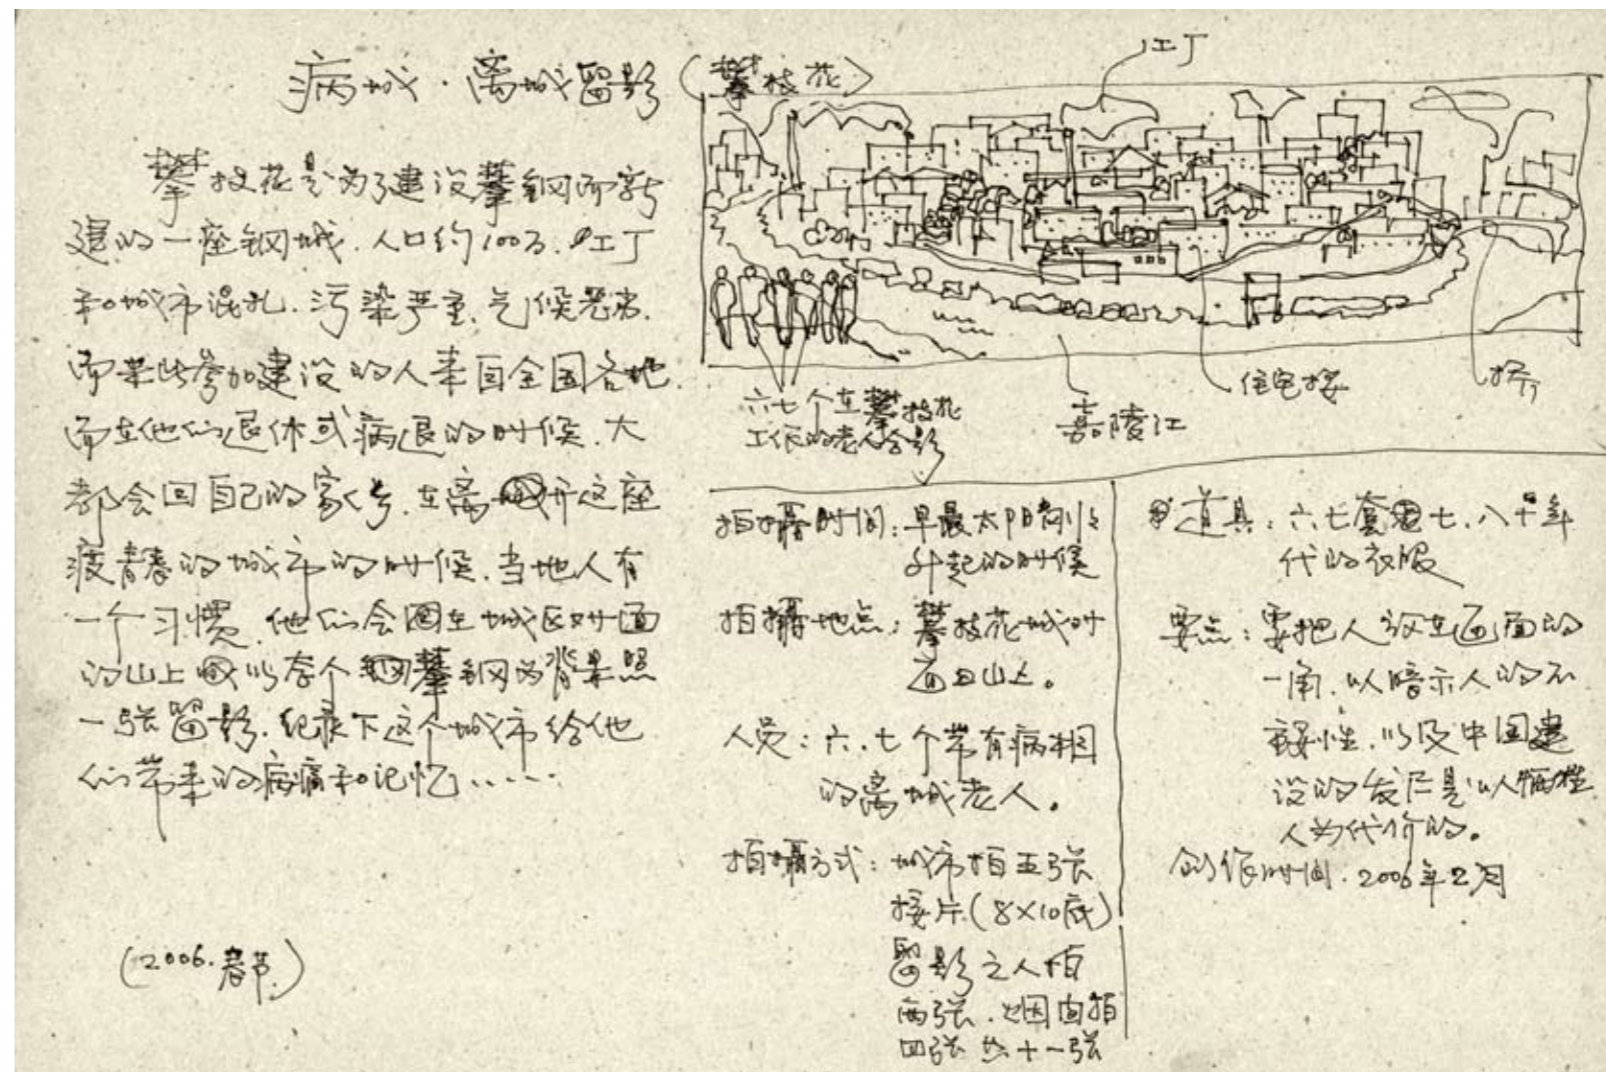 病城·离城留影(攀枝花)
攀枝花是为了建设攀钢而新
建的一座钢城．人口约100万．工厂
和城市混乱．污染严重．气候恶劣．
而某些参加建设的人来自全国各地．
而在他们退休或病退的时候．大
都会回自己的家乡．在离开这座
废青春的城市的时候．当地人有
一个习惯．他们会在城区对面
的山上以李个攀钢为背景照
一张留影．纪录下这个城市给他
们带来的病痛和记忆……
(2006.春节.)
工厂
六七个在攀枝花
工作的老人合影
嘉陵江
住宅楼
桥
拍摄时间：早晨太阳刚刚
升起的时候
拍摄地点：攀枝花城对
面山上。
人员：六、七个带有病相
的离城老人。
拍摄方式：城市拍五张
接片(8×10底)
留影之人拍
两张．烟囱拍
四张 共十一张
道具：六七套七、八十年
代的衣服
要点：要把人放在画面的
一角．以暗示人的不
重要性．以及中国建
设的发展是以牺牲
人为代价的。
创作时间．2006年2月